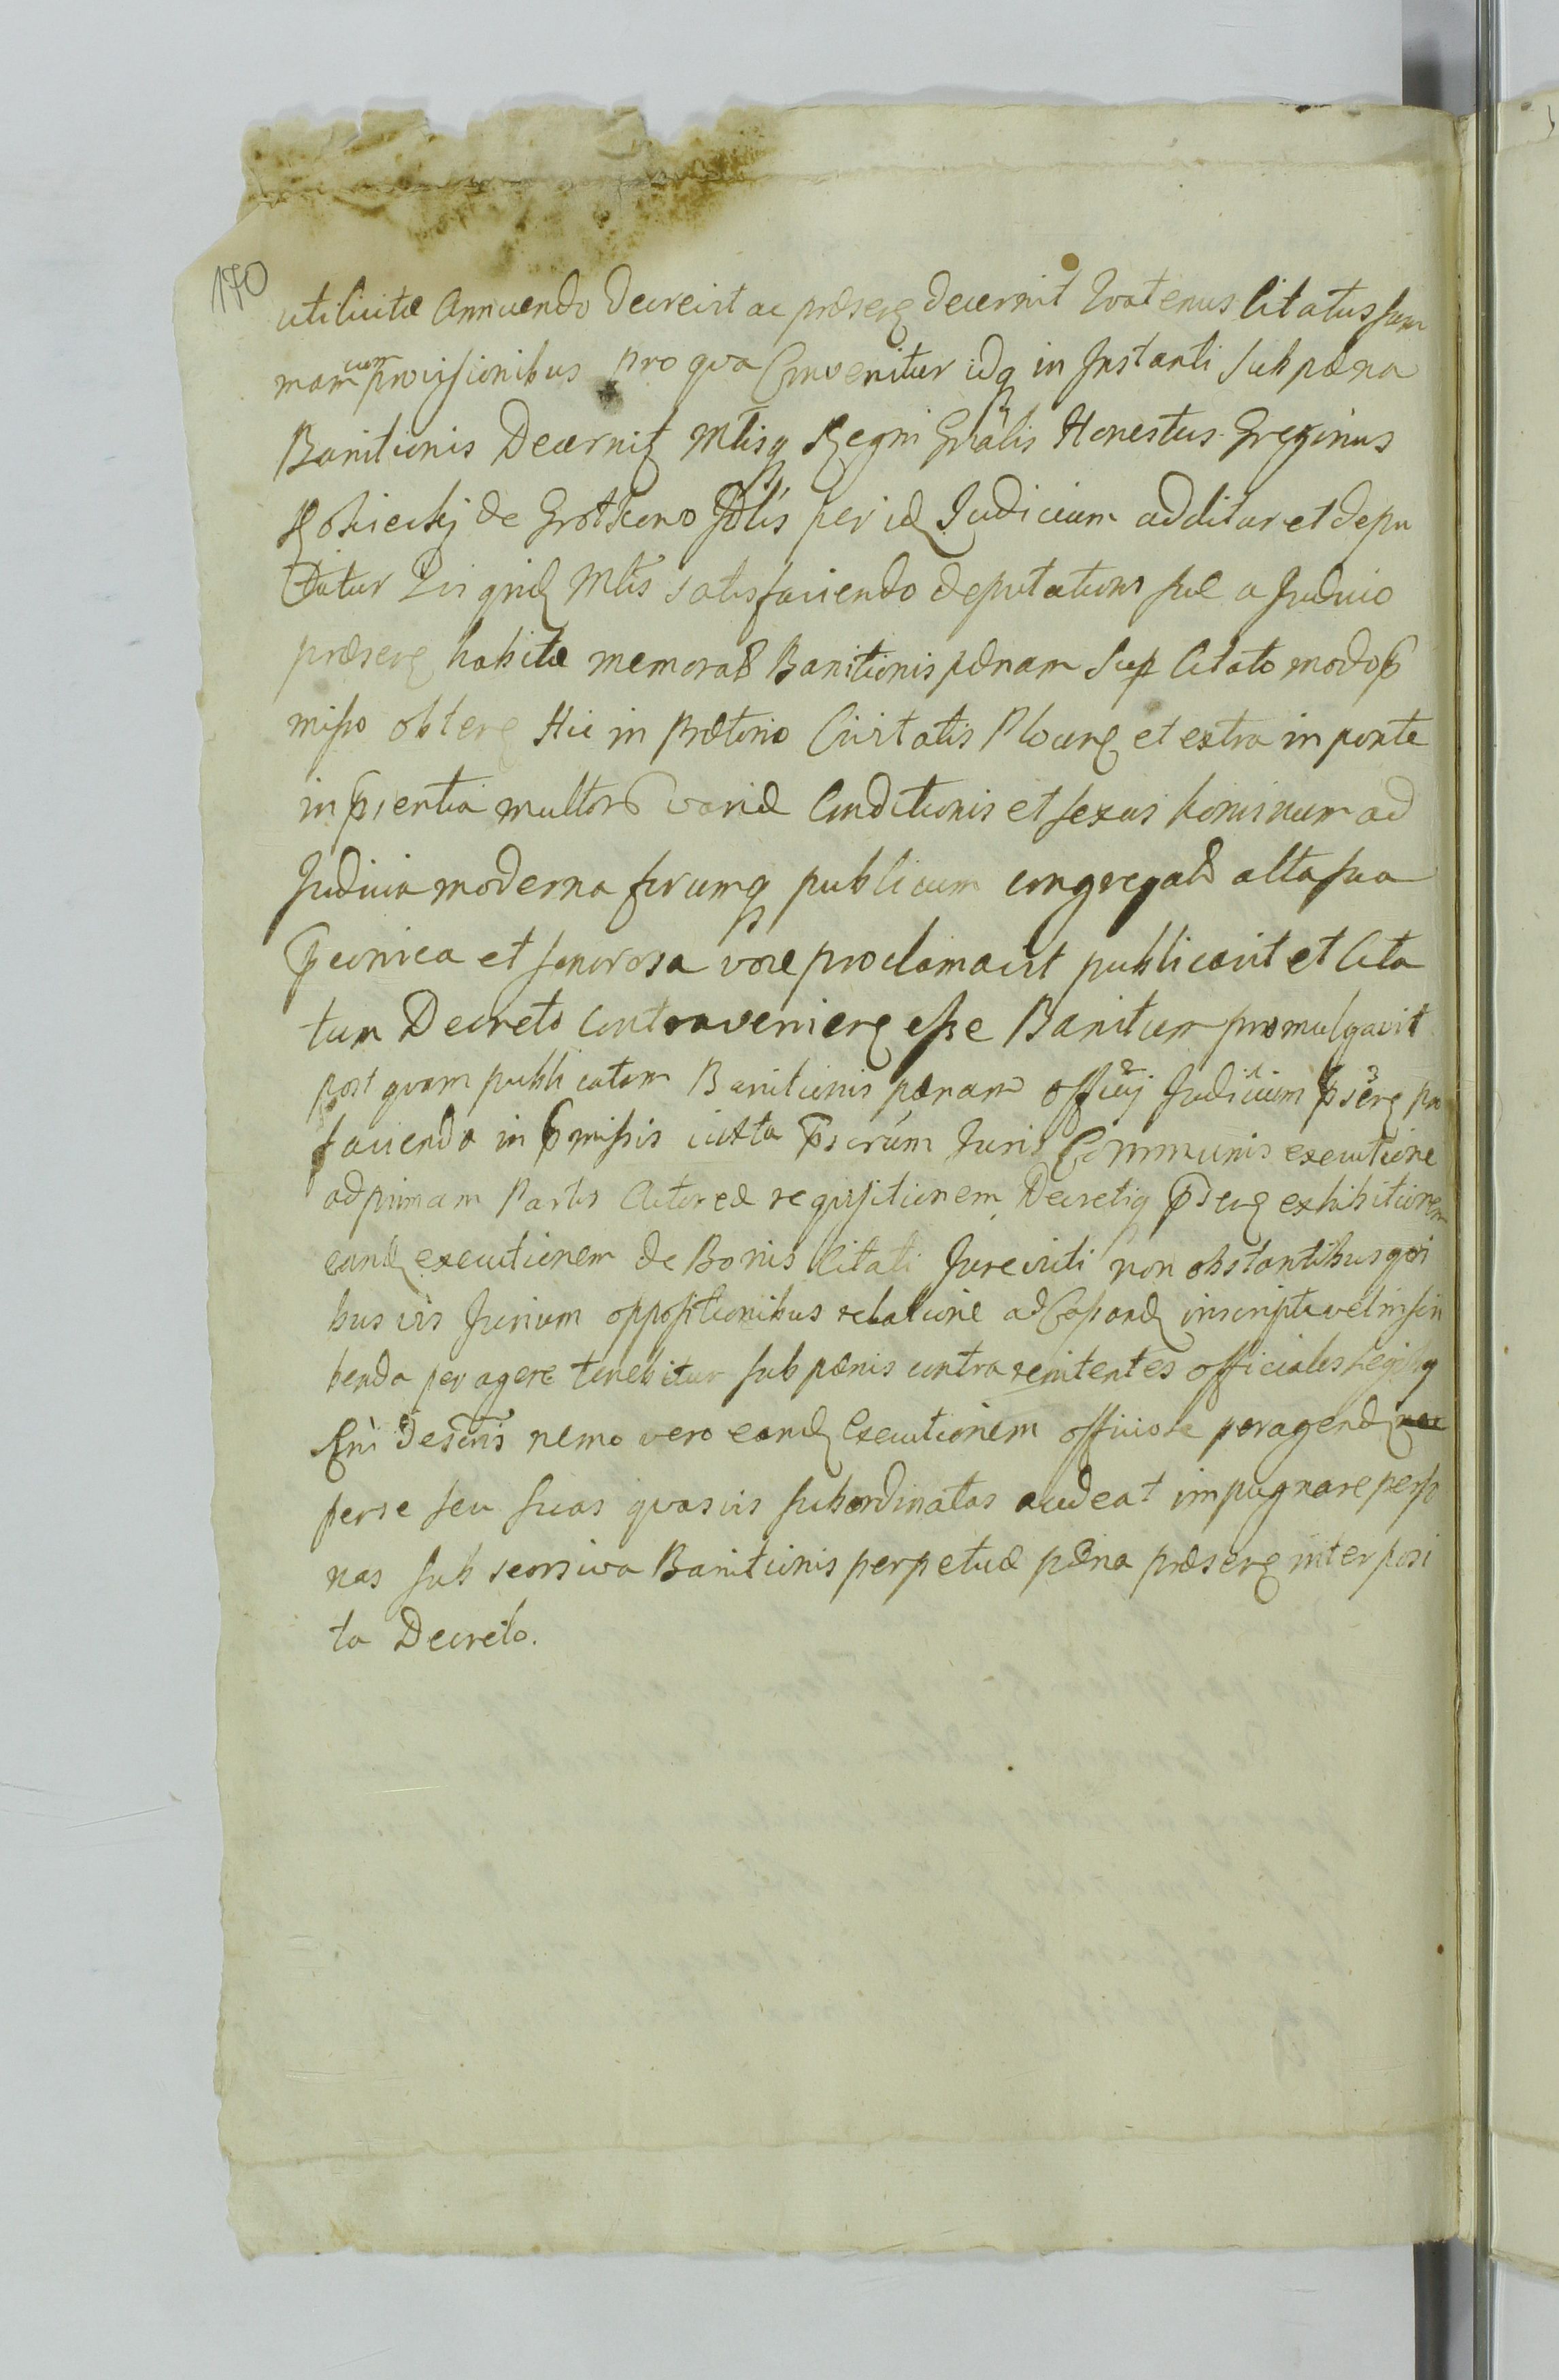 170
utilitate Annuendo decrevit ac præsenꝗ decernit Quatenus Citatus sum
mam cum provisionibus pro qua Convenitur idq in Instanti sub pæna
Banitionis Decernitꝗ Mtlisq Regni Gnalis Honestus
de per id Judicium additur et depu
tatur Qui quidꝗ Mtlis satisfaciendo deputationi suæ a Judicio
præsenꝗ habitæ memorat Banitionis pænam sup Citato modo p
misso obtenꝗ Hic in Prætorio Civitatis Plocenꝗ et extra in ponte
in psentia multor variæ Conditionis et sexus hominum ad
Judicia moderna forumq publicum congregat alta sua
pconica et sonorosa voce proclamavit publicavit et Cita
tum Decreto Contravenienꝗ esse Banitum promulgavit
post quam publicatam Banitionis pænam officij Judicium psenꝗ pn
faciendo in pmissis iuxta pscriúm Juris Communis executione
ad primam Partis Actoreæ requisitionem Decretiq psenꝗ exhibitionem
eandꝗ executionem de Bonis Citati Jurevicti non obstantibus qui
bus vis Jurium oppositionibus relatione ad inscripta vel inscri
benda peragere tenebitur sub pænis contra renitentes officiales legibq
Rni descris nemo vero eandꝗ Executionem officiose peragendꝗ
per se seu suas quasvis subordinatas audeat impugnare perso
nas sub seorsiva Banitionis perpetuæ pæna præsenꝗ interposi
to Decreto.